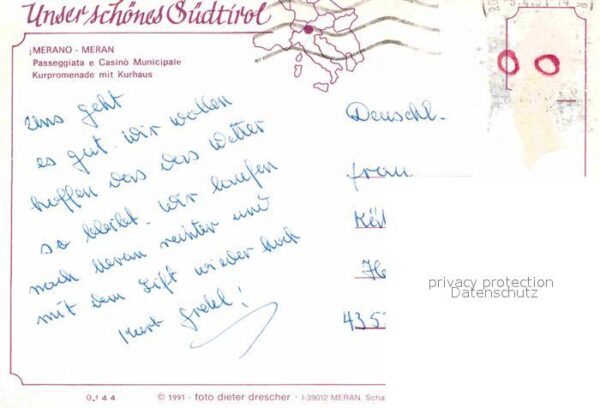 Unser schönes Südtirol
MERANO - MERAN
Passeggiata e Casinò Municipale
Kurpromenade mit Kurhaus
Uns geht
es gut. Wir wollen
hoffen das das Wetter
so bleibt. Wir laufen
nach Meran reinter und
mit dem Lift wieder hoch
Kurt Gretel!
Deuschl.
Frau
435
privacy protection
Datenschutz
0.144 © 1991 - foto dieter drescher - I-39012 MERAN, Scha